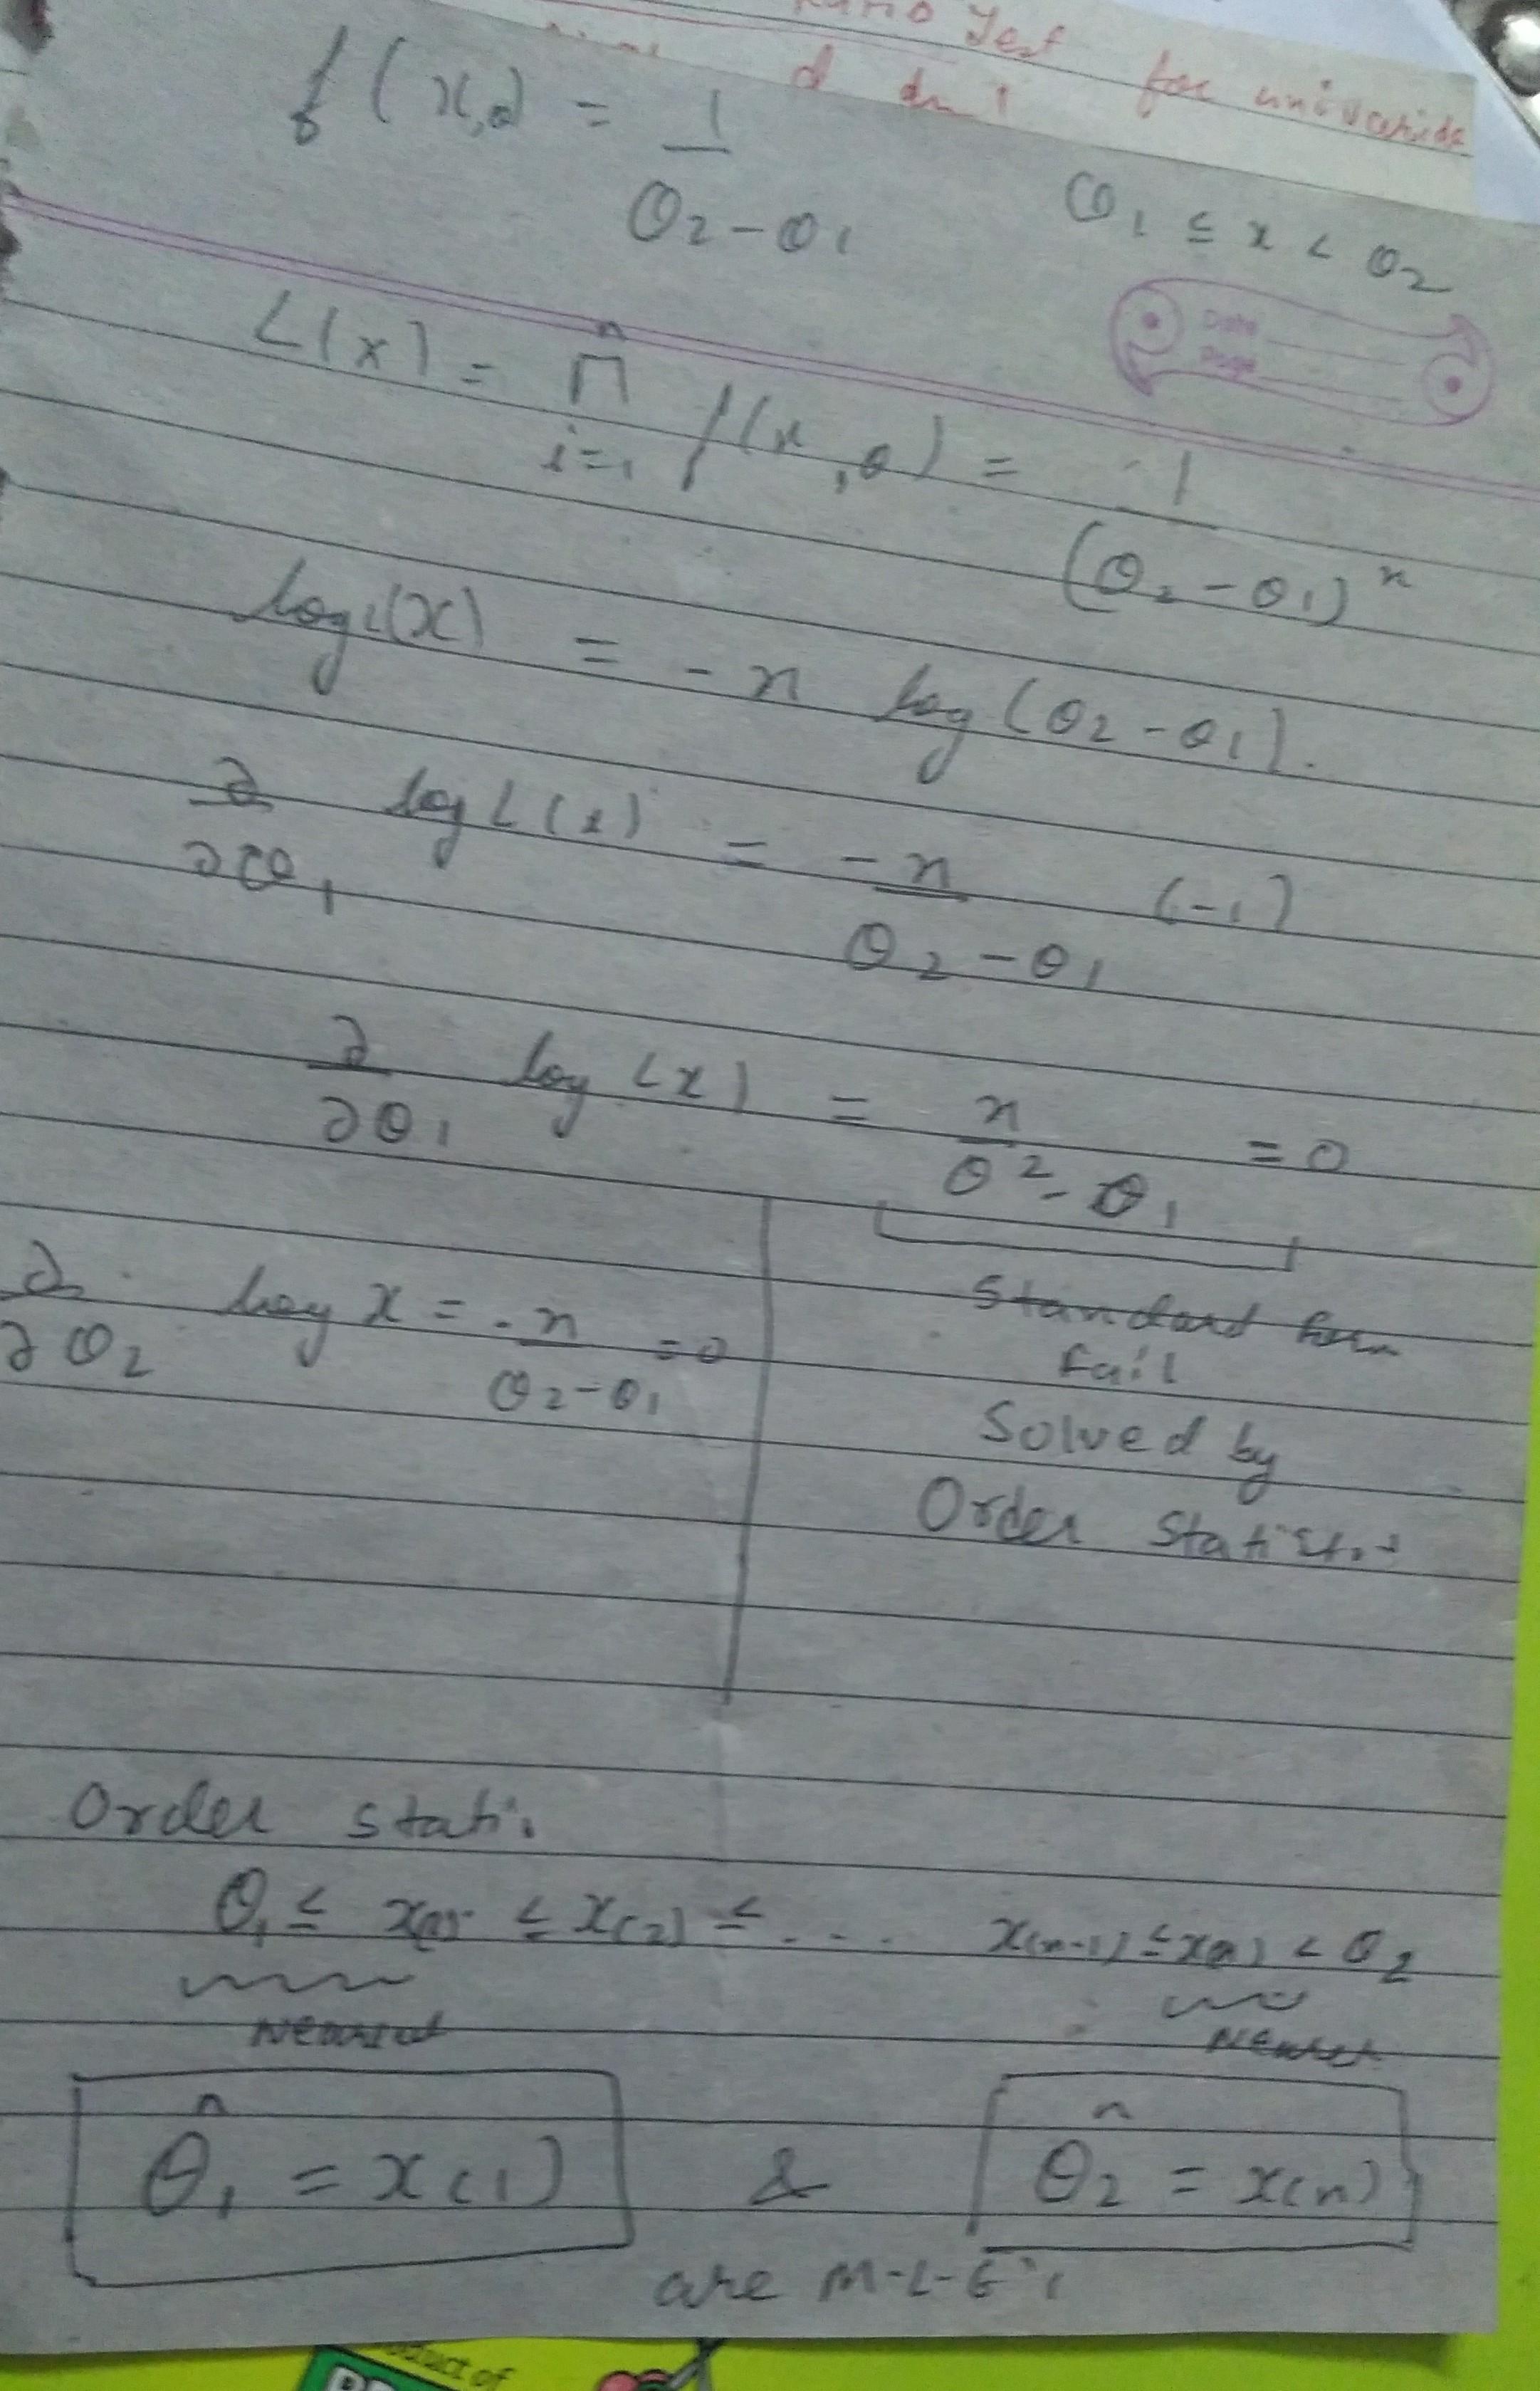 Test for univariate
f(x,θ) = 1/(θ2-θ1) θ1 ≤ x < θ2
Date
Page
L(x) = n Π i=1 f(x,θ) = 1/(θ2-θ1)^n
log L(x) = -n log(θ2-θ1).
∂/∂θ1 log L(x) = -n/(θ2-θ1) (-1)
∂/∂θ1 log L(x) = n/(θ2-θ1) = 0
∂/∂θ2 log x = -n/(θ2-θ1) = 0
Standard form
fail
Solved by
Order
Order stati.
θ1 ≤ x(1) ≤ x(2) ≤ ... x(n-1) ≤ x(n) < θ2
Nearest Nearest
θ̂1 = x(1) & θ̂2 = x(n)
are M-L-E
product of